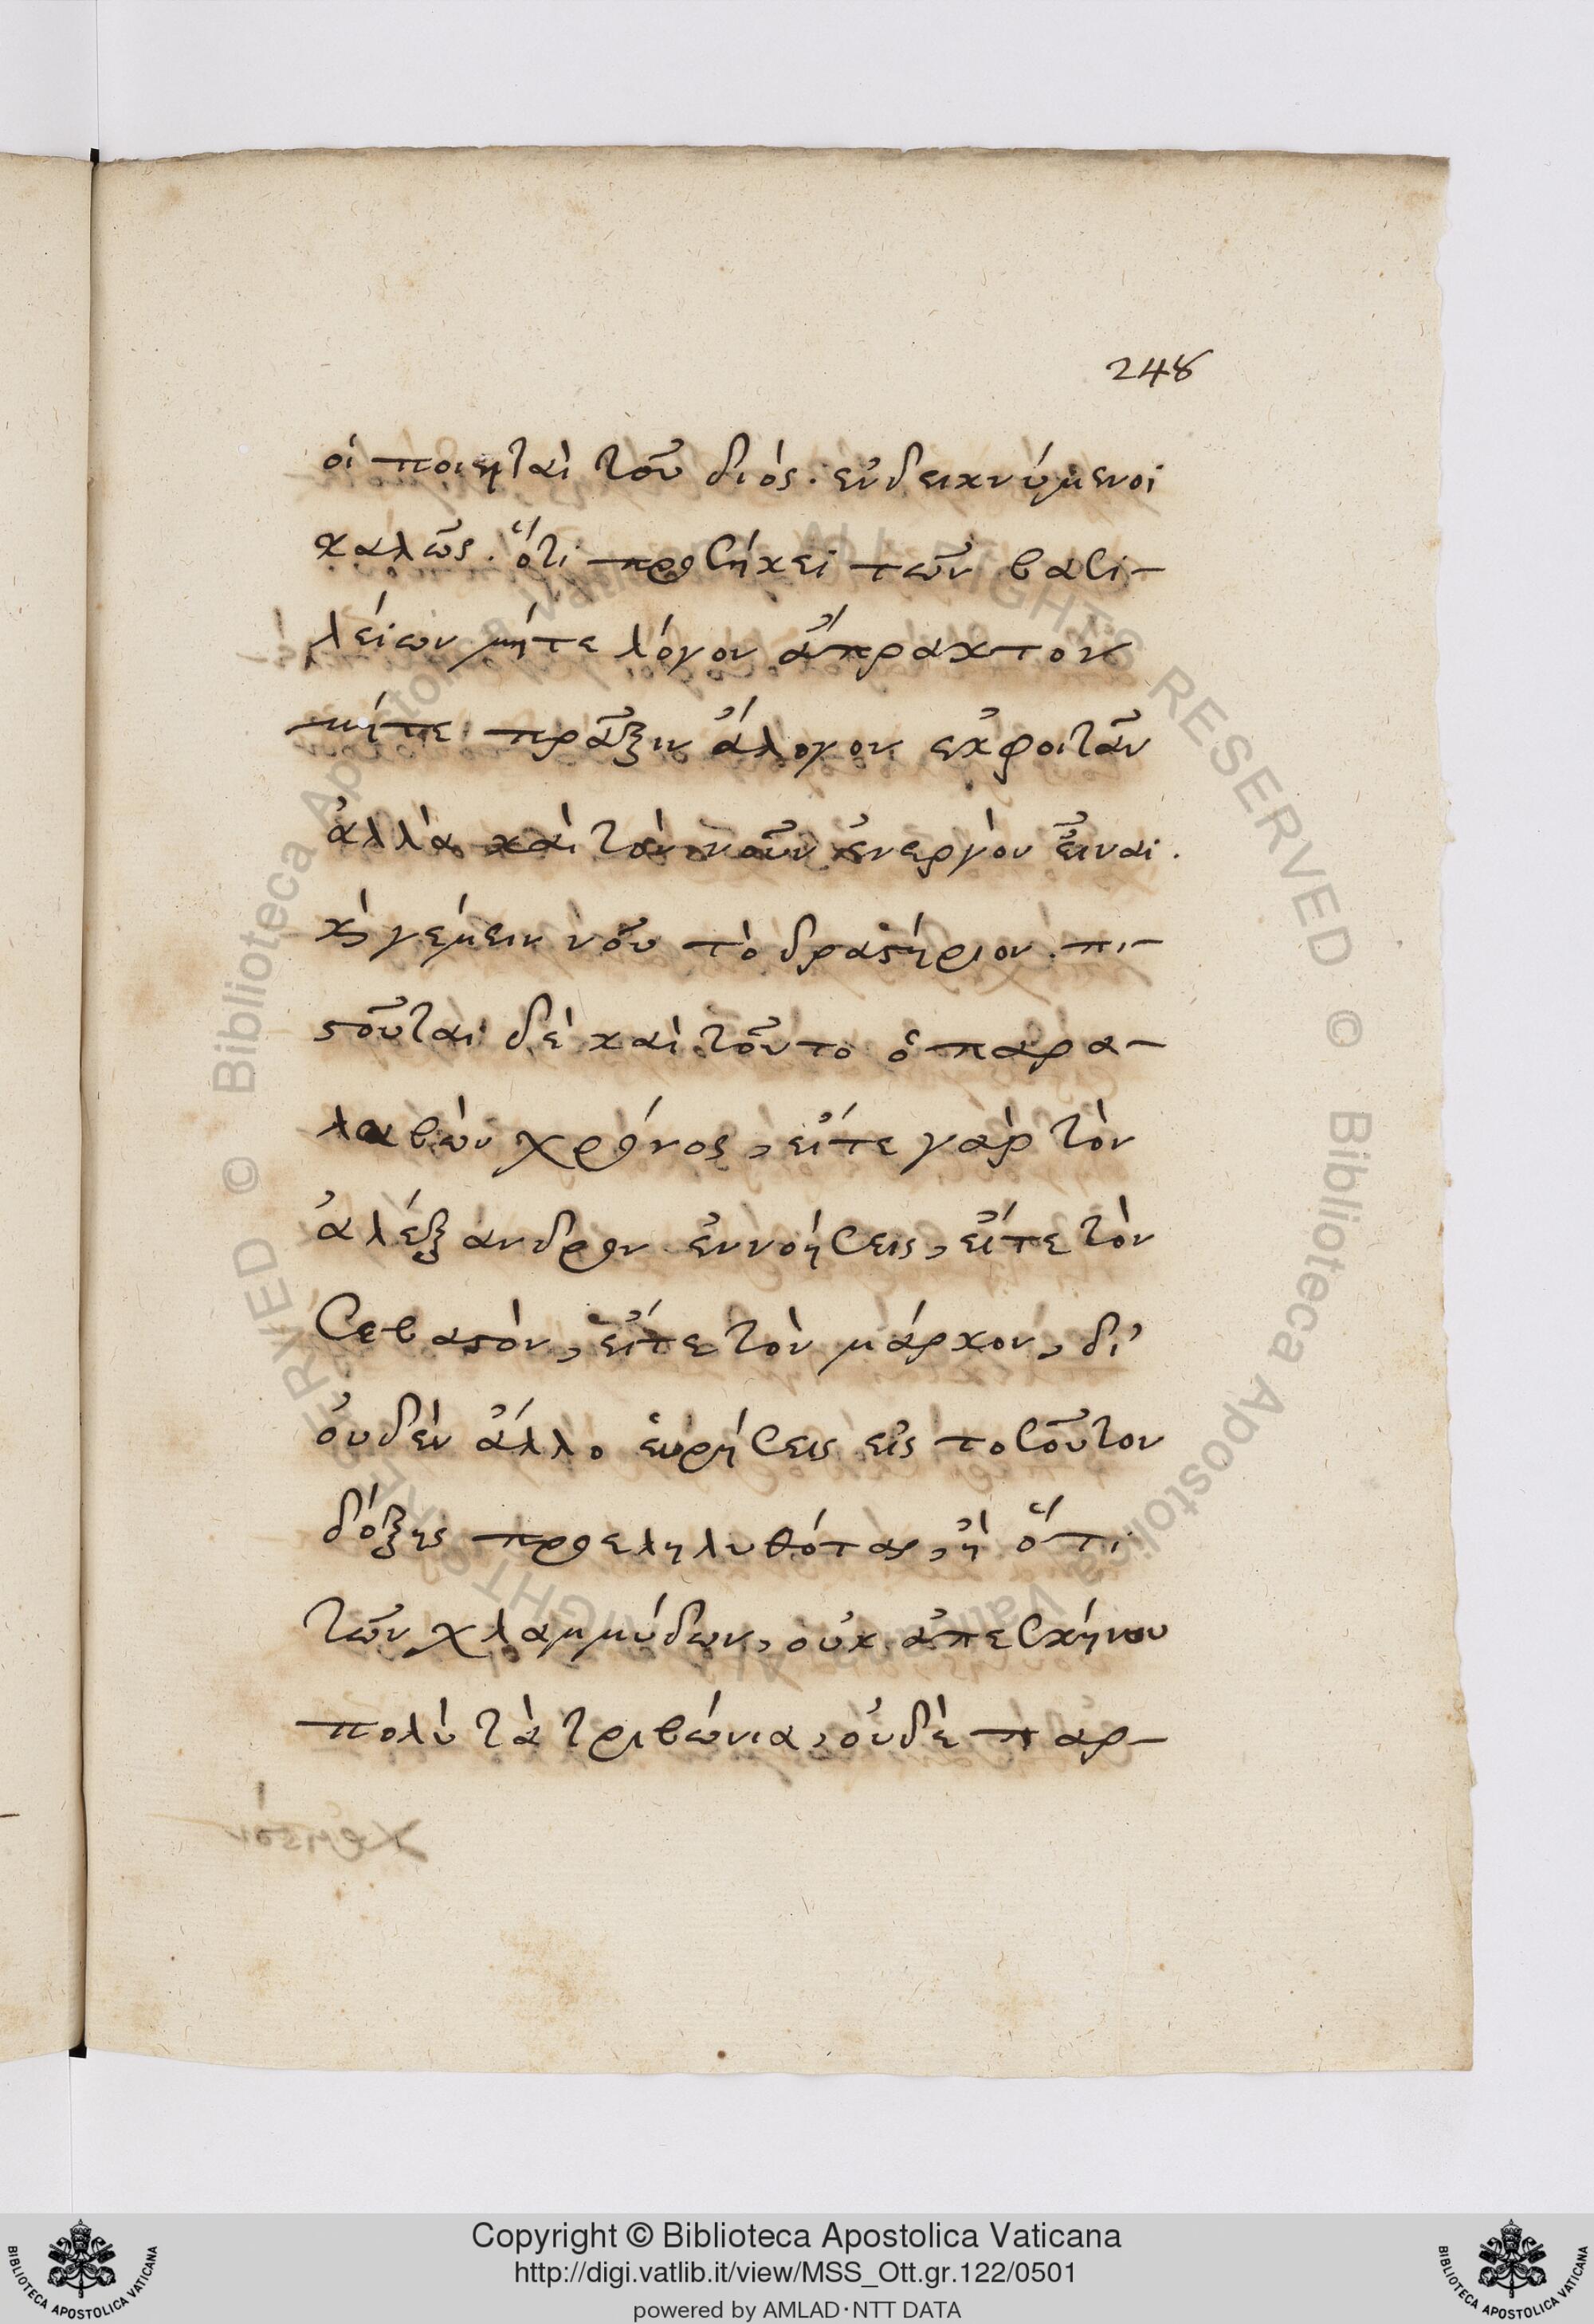 248
οἱ ποιηταὶ τοῦ διός. ἐνδεικνύμενοι
καλῶς. ὅτι προσήκει τῶν βασι-
λείων μήτε λόγον ἄπρακτον
μήτε πρᾶξιν ἄλογον ἐκφοιτᾶν
ἀλλὰ καὶ τὸν νοῦν ἐνεργὸν εἶναι.
κὴ γέμειν νοῦ τὸ δραστήριον. πι-
στοῦται δὲ καὶ τοῦτο ὁ παρα-
λαβὼν χρόνος, εἴτε γὰρ τὸν
ἀλέξανδρον ἐννοήσεις, εἴτε τὸν
Σεβαστὸν, εἴτε τὸν μάρκον, δι'
ὀυδὲν ἄλλο ἑυρήσεις εἰς τοσοῦτον
δόξης προεληλυθότας, ἢ ὅτι
τῶν χλαμμύδων, οὐκ ἀπεσκήνου
πολὺ τὰ τριβώνια, ὀυδὲ παρ-
Copyright © Biblioteca Apostolica Vaticana
http://digi.vatlib.it/view/MSS_Ott.gr.122/0501
powered by AMLAD·NTT DATA
BIBLIOTECA APOSTOLICA VATICANA
BIBLIOTECA APOSTOLICA VATICANA